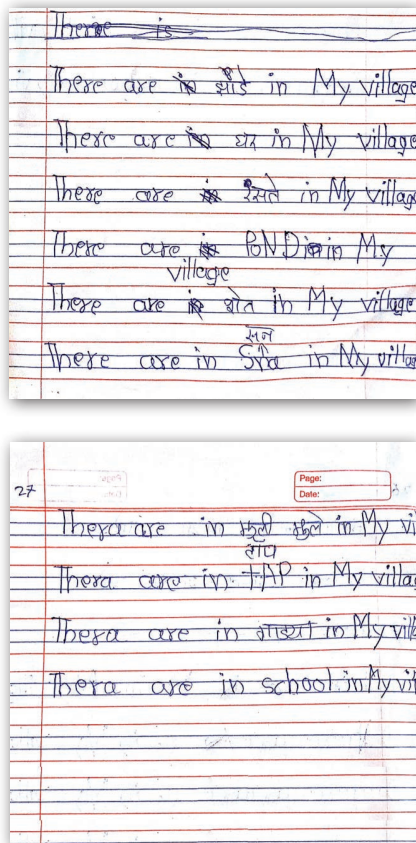 There is
There are झाडे in My village
There are घर in My village
There are रस्ते in My village
There are PoND in My
village
There are शेत in My village
There are in in My villag
27
Page:
Date:
Thera are in झुले in My vi
टॉप
Thera are in TAP in My villag
Thera are in गाड्या in My vill
Thera are in school in My vil